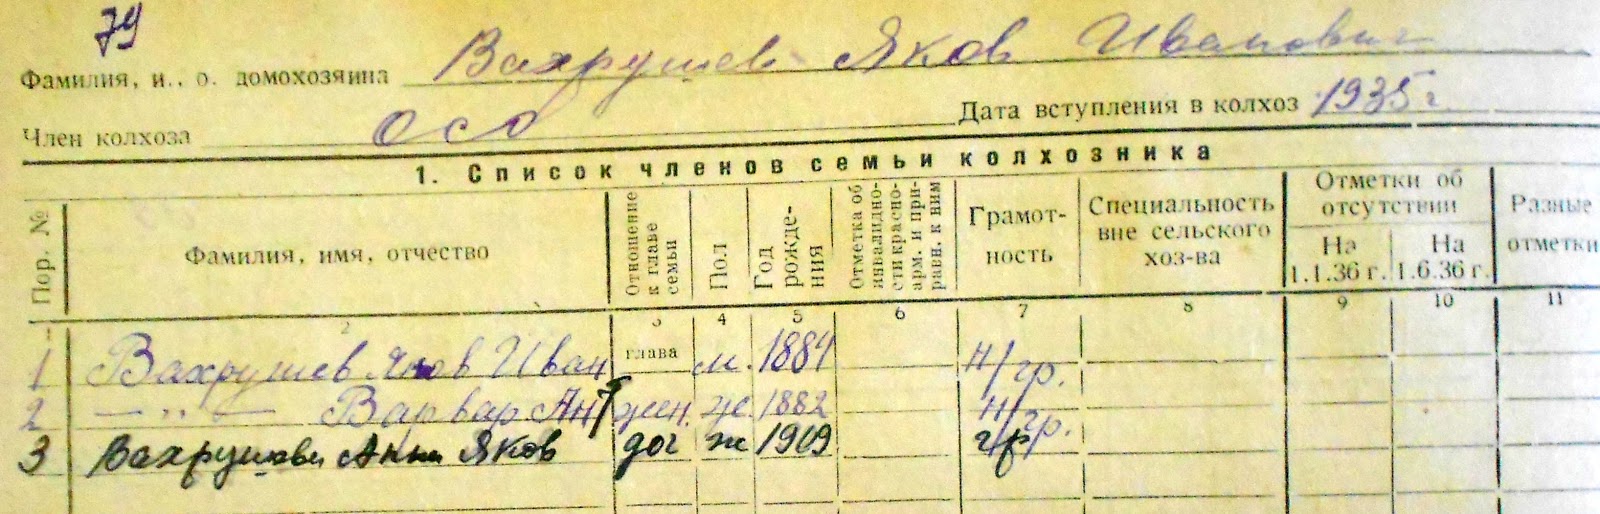 79
Фамилия, и., о. домохозяина Вахрушев Яков Иванович
Член колхоза ОСО Дата вступления в колхоз 1935 г.
1. Список членов семьи колхозника
Пор. № Фамилия, имя, отчество Отношение к главе семьи Пол Год рожде- ния Отметка об инвалидно- сти красно- арм. и при- равн. к ним Грамот- ность Специальность вне сельского хоз-ва Отметки об отсутствии На 1.1.36 г. На 1.6.36 г. Разные отметки
1 2 3 4 5 6 7 8 9 10 11
1 Вахрушев Яков Иван глава м. 1884 н/гр.
2 — „ — Варвар Ант жен. ж. 1882 н/гр.
3 Вахрушева Анна Яков доч ж 1909 гр